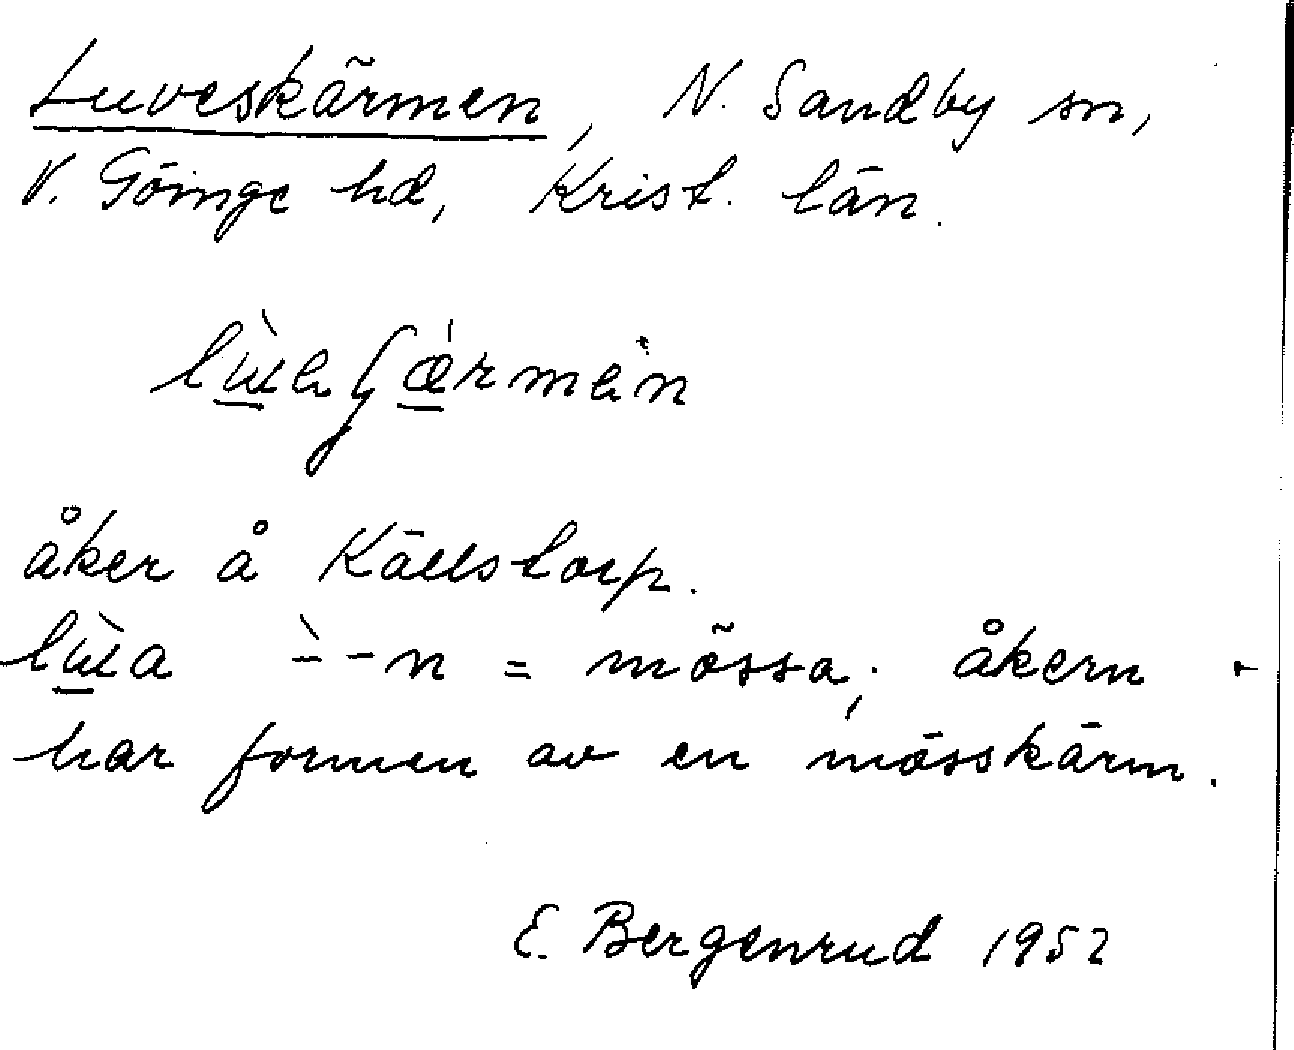 Luveskärmen, N. Sandby sn,
V. Göinge hd, Krist. län.
åker å Källstorp.
= mössa; åkern
har formen av en mösskärm.
E. Bergenrud 1952